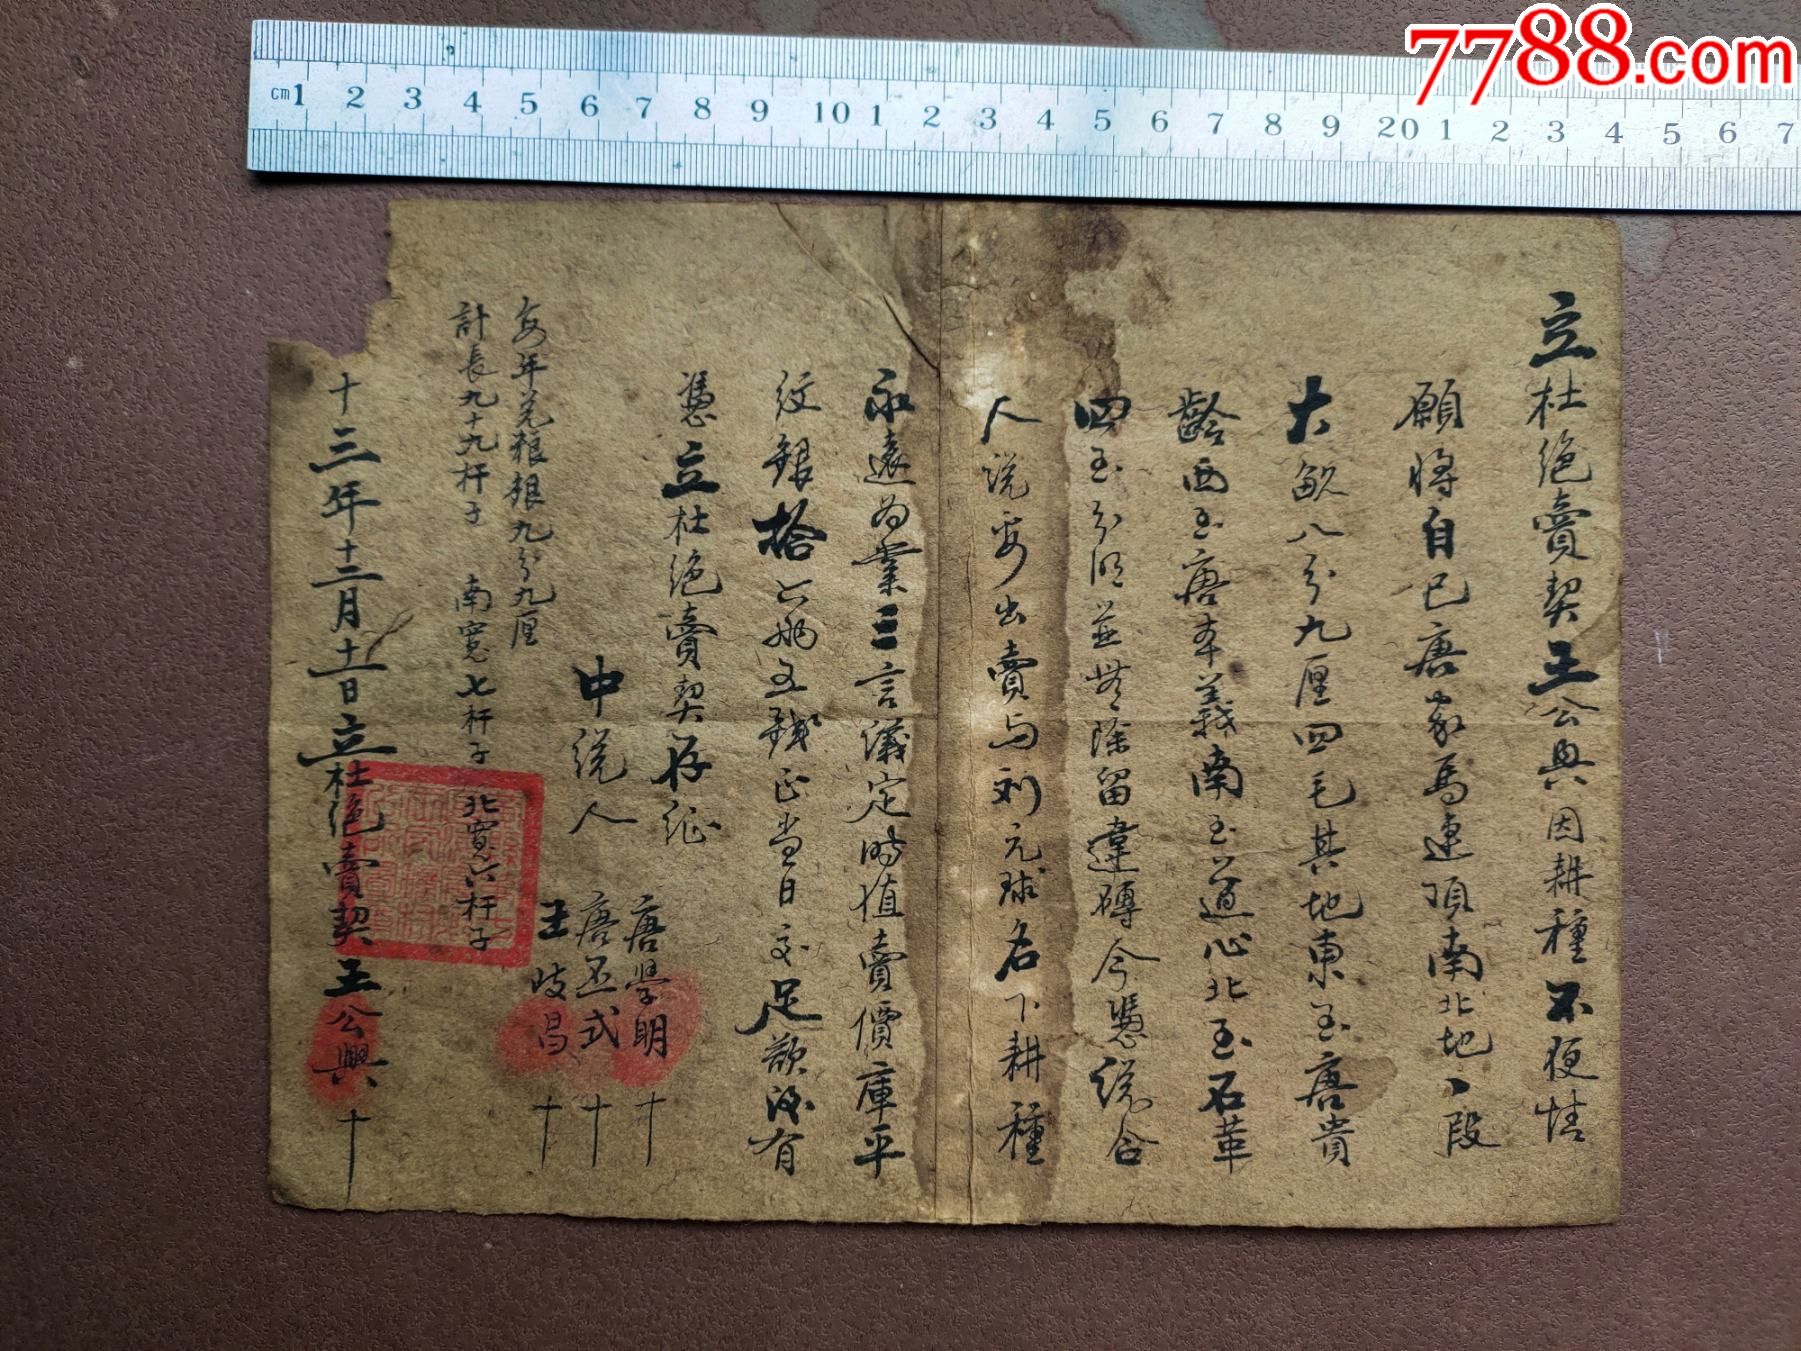 7788.com
cm 1 2 3 4 5 6 7 8 9 10 1 2 3 4 5 6 7 8 9 20 1 2 3 4 5 6 7
立杜绝賣契王公興因耕種不便情
願將自已唐家馬連頂南北地一段
大畝八分九厘四毛其地東至唐貴
齡西至唐本義南至道心北至石革
四至分明並無除留違碍今憑説合
人说妥出賣与刘元球名下耕種
永遠为業三言議定時值賣價庫平
纹銀拾六两五錢正当日交足欲後有
憑立杜绝賣契存证
中说人
唐學明 十
唐丕式 十
王岐昌 十
每年兑粮銀九分九厘
計長九十九杆子 南寬七杆子 北寬六杆子
十三年十二月十一日立杜绝賣契王公興 十